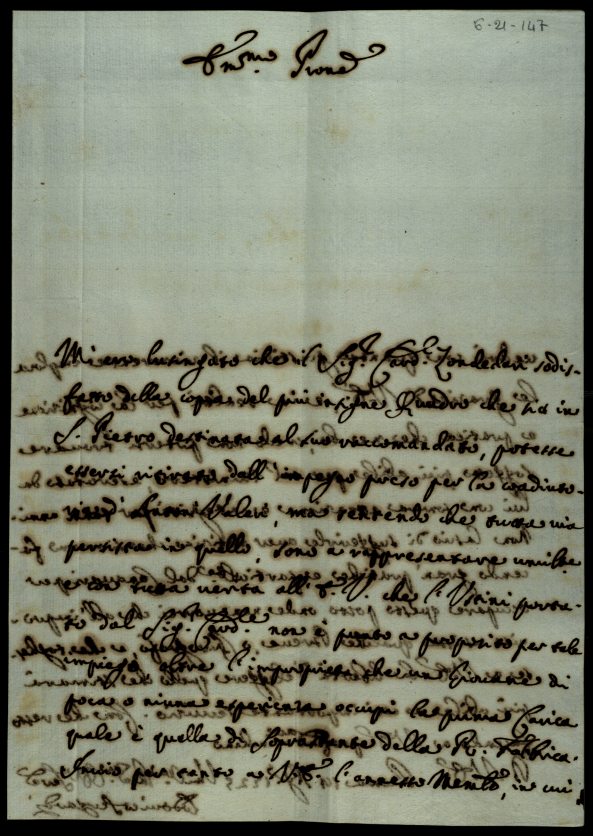 6-21-147
Em.mo Prone
Mi ero lusingato che il Sig.r Card.l Zondedari sodis-
fatto della copia del più insigne Quadro che sia in
S. Pietro destinata al suo raccomandato, potesse
essersi ritirato dall'impegno preso per la coadiuto-
ria Valeri, ma sentendo che tutta via
persista in quello, sono a rappresentare umilm.e
con tutta verità all'E. V. che l'Ussini porta-
to dal Sig. Card.le non è punto a proposito per tale
impiego, oltre l'improprietà che un Giovane di
poca o niuna esperienza occupi la prima Carica
quale è quella di Soprastante della R. Fabbrica.
Invio per tanto a V. E. l'annesso Mem.le, in cui